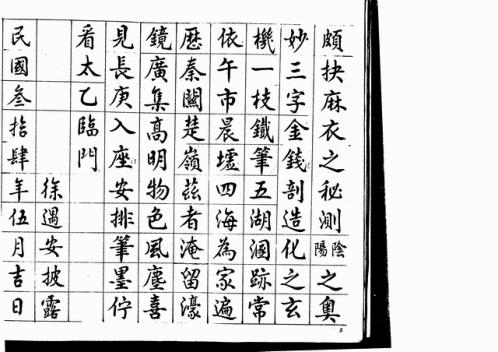 頗抉麻衣之秘測陰陽之奧
妙三字金錢剖造化之玄
機一枝鐵筆五湖涸跡常
依午市晨墟四海為家遍
歷秦關楚嶺茲者淹留濠
鏡廣集高明物色風塵喜
見長庚入座安排筆墨佇
看太乙臨門
徐過安披露
民國叁拾肆年伍月吉日
5